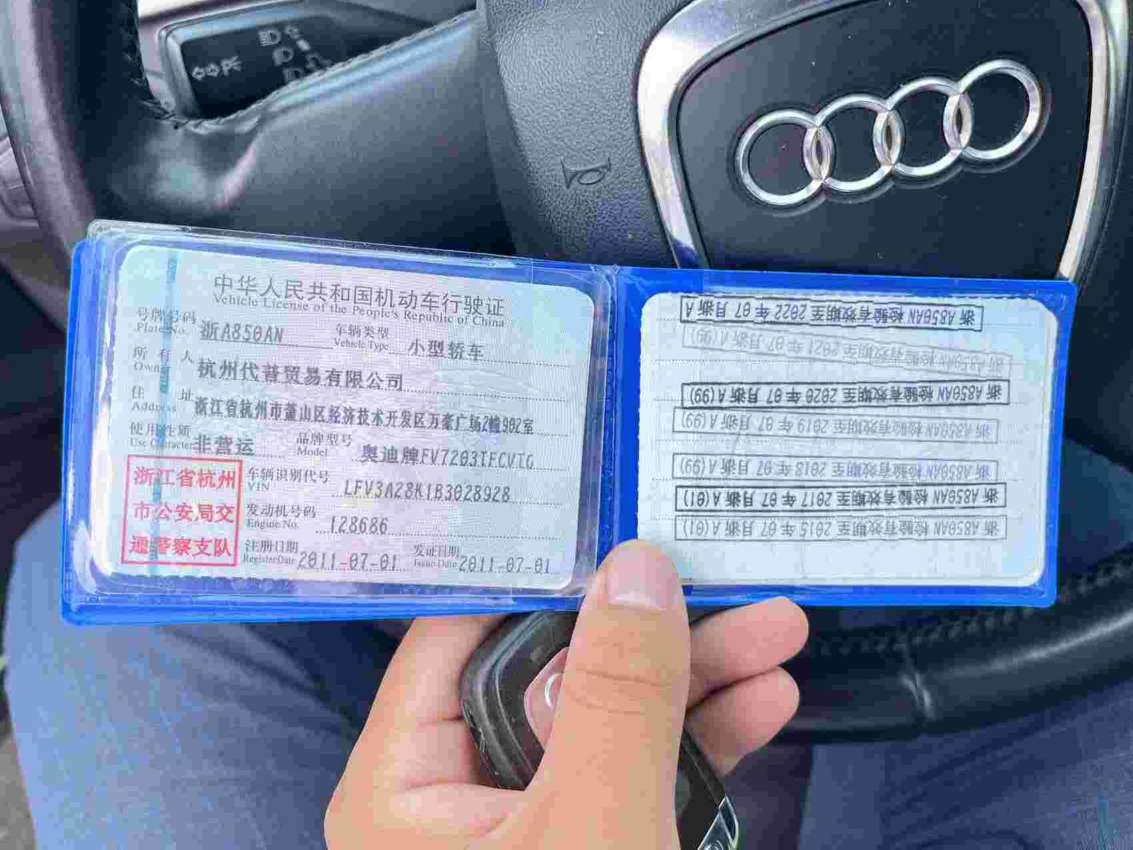 中华人民共和国机动车行驶证
Vehicle License of the People's Republic of China
号牌号码 浙A850AN 车辆类型 小型轿车
Plate No. Vehicle Type
所有人 杭州代普贸易有限公司
Owner
住址 浙江省杭州市萧山区经济技术开发区万豪广场2幢902室
Address
使用性质 非营运 品牌型号 奥迪牌FV7203TFCVTG
Use Character Model
浙江省杭州
市公安局交
通警察支队
车辆识别代号 LFV3A28K1B3028928
VIN
发动机号码 128686
Engine No.
注册日期 2011-07-01 发证日期 2011-07-01
Register Date Issue Date
浙A850AN 检验有效期至 2015 年 07 月浙A(01)
浙A850AN 检验有效期至 2017 年 07 月浙A(01)
浙A850AN 检验有效期至 2018 年 07 月浙A(99)
浙A850AN 检验有效期至 2019 年 07 月浙A(99)
浙A850AN 检验有效期至 2020 年 07 月浙A(99)
浙A850AN 检验有效期至 2021 年 07 月浙A(99)
浙A850AN 检验有效期至 2022 年 07 月浙A